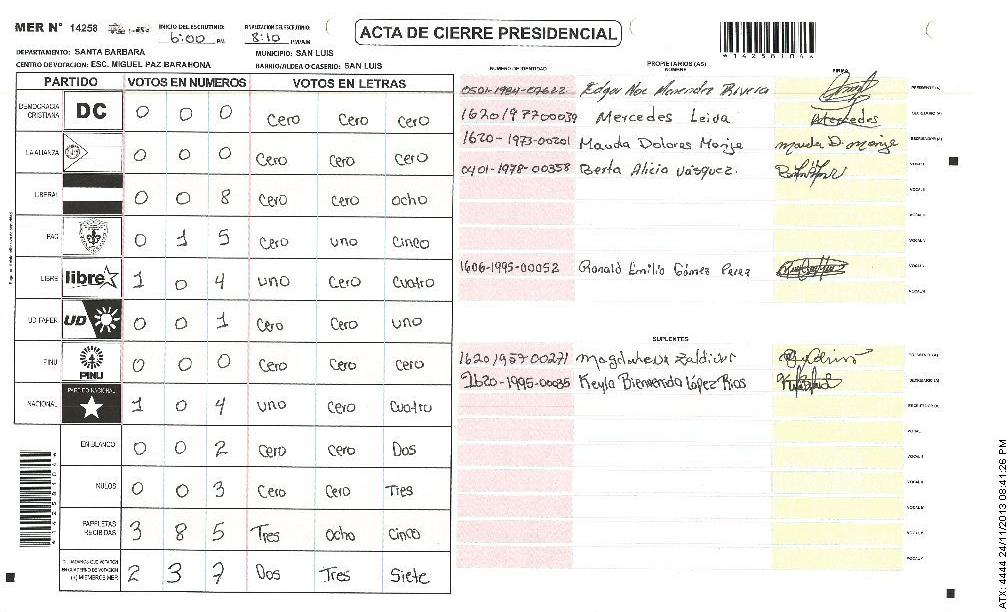 MER N° 14258
INICIO DEL ESCRUTINIO: 6:00 PM
FINALIZACION DEL ESCRUTINIO: 8:10 PM/AM
ACTA DE CIERRE PRESIDENCIAL
DEPARTAMENTO: SANTA BARBARA
MUNICIPIO: SAN LUIS
CENTRO DE VOTACION: ESC. MIGUEL PAZ BARAHONA
BARRIO/ALDEA O CASERIO: SAN LUIS
PARTIDO VOTOS EN NUMEROS VOTOS EN LETRAS
DEMOCRACIA CRISTIANA DC 0 0 0 Cero Cero Cero
LA ALIANZA 0 0 0 Cero Cero Cero
LIBERAL 0 0 8 Cero Cero ocho
PAC 0 1 5 Cero uno Cinco
LIBRE libre 1 0 4 uno Cero Cuatro
UD-FAPER UD 0 0 1 Cero Cero uno
PINU PINU 0 0 0 Cero Cero Cero
NACIONAL PARTIDO NACIONAL 1 0 4 uno Cero Cuatro
EN BLANCO 0 0 2 Cero Cero Dos
NULOS 0 0 3 Cero Cero Tres
PAPELETAS RECIBIDAS 3 8 5 Tres ocho Cinco
CIUDADANOS QUE VOTARON EN CUADERNO DE VOTACION (+) MIEMBROS MER 2 3 7 Dos Tres Siete
NUMERO DE IDENTIDAD PROPIETARIOS (AS) NOMBRE FIRMA
0501-1984-07622 Edgar Noe Menendez Rivera PRESIDENTE (A)
1620197700039 Mercedes Leiva SECRETARIO (A)
1620-1973-00201 Mauda Dolores ESCRUTADOR (A)
0401-1978-00358 Berta Alicia Vásquez. VOCAL
1606-1995-00052 Ronald Emilio Gómez Perez VOCAL
SUPLENTES
1620195700271 Zaldivar PRESIDENTE (A)
1620-1995-00035 Keyla Bienvenida López Rios SECRETARIO (A)
ESCRUTADOR (A)
ATX: 4444 24/11/2013 08:41:26 PM